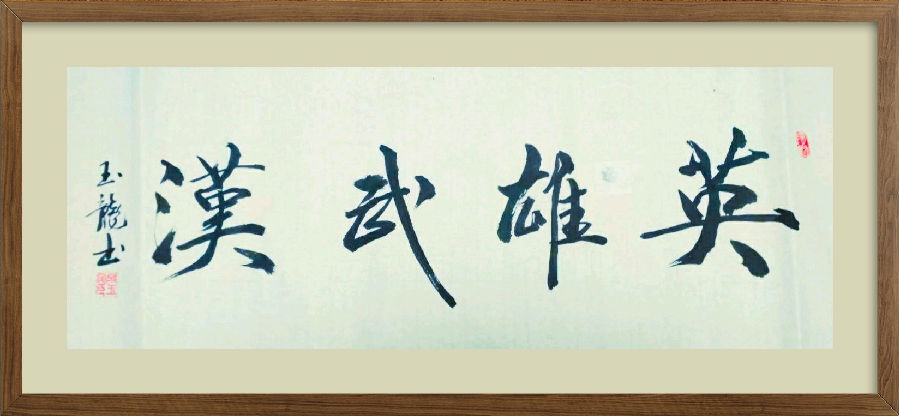 英雄武漢
玉龍书